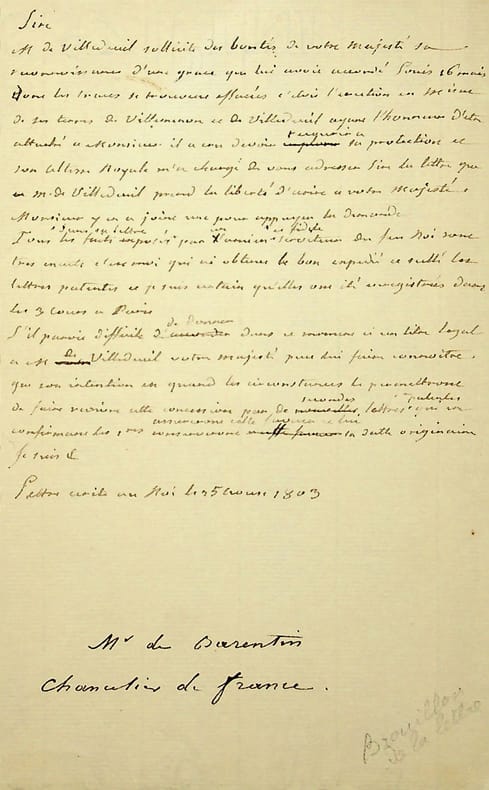 Sire
M de Villedeuil sollicite des bontés de votre majesté sa
reconnoissance d'une grace que lui avoit accordé Louis 16 mais
dont les traces se trouvent effacées c'étoit l'érection en
de ses terres de Villemenon et de Villedeuil ayant l'honneur d'etre
attaché a Monsieur il a cru devoir sa protection et
son altesse Royale m'a chargé de vous adresser Sire la lettre que
M. de Villedeuil prend la liberté d'écrire a votre Majesté.
Monsieur y en a joint une pour appuyer la demande
dans sa lettre et fidele
Tous les faits exposés par serviteur du feu Roi sont
tres exacts c'est moi qui ai obtenu le bon expedié et scellé les
lettres patentes et je suis certain qu'elles ont été enregistrées dans
les 3 cours a Paris
de donner
S'il paroit difficile dans ce moment ci un titre legal
a M de Villedeuil votre majesté peut lui faire connoitre
que son intention est quand les circonstances le permettront
secondes patentes
de faire revivre cette concession par de lettres qui en
confirmant les 1res conserveront sa datte originaire
Je suis &
Lettre écrite au Roi le 25 1803
Mr de Barentin
Chancelier de france.
Brouillon
de la lettre